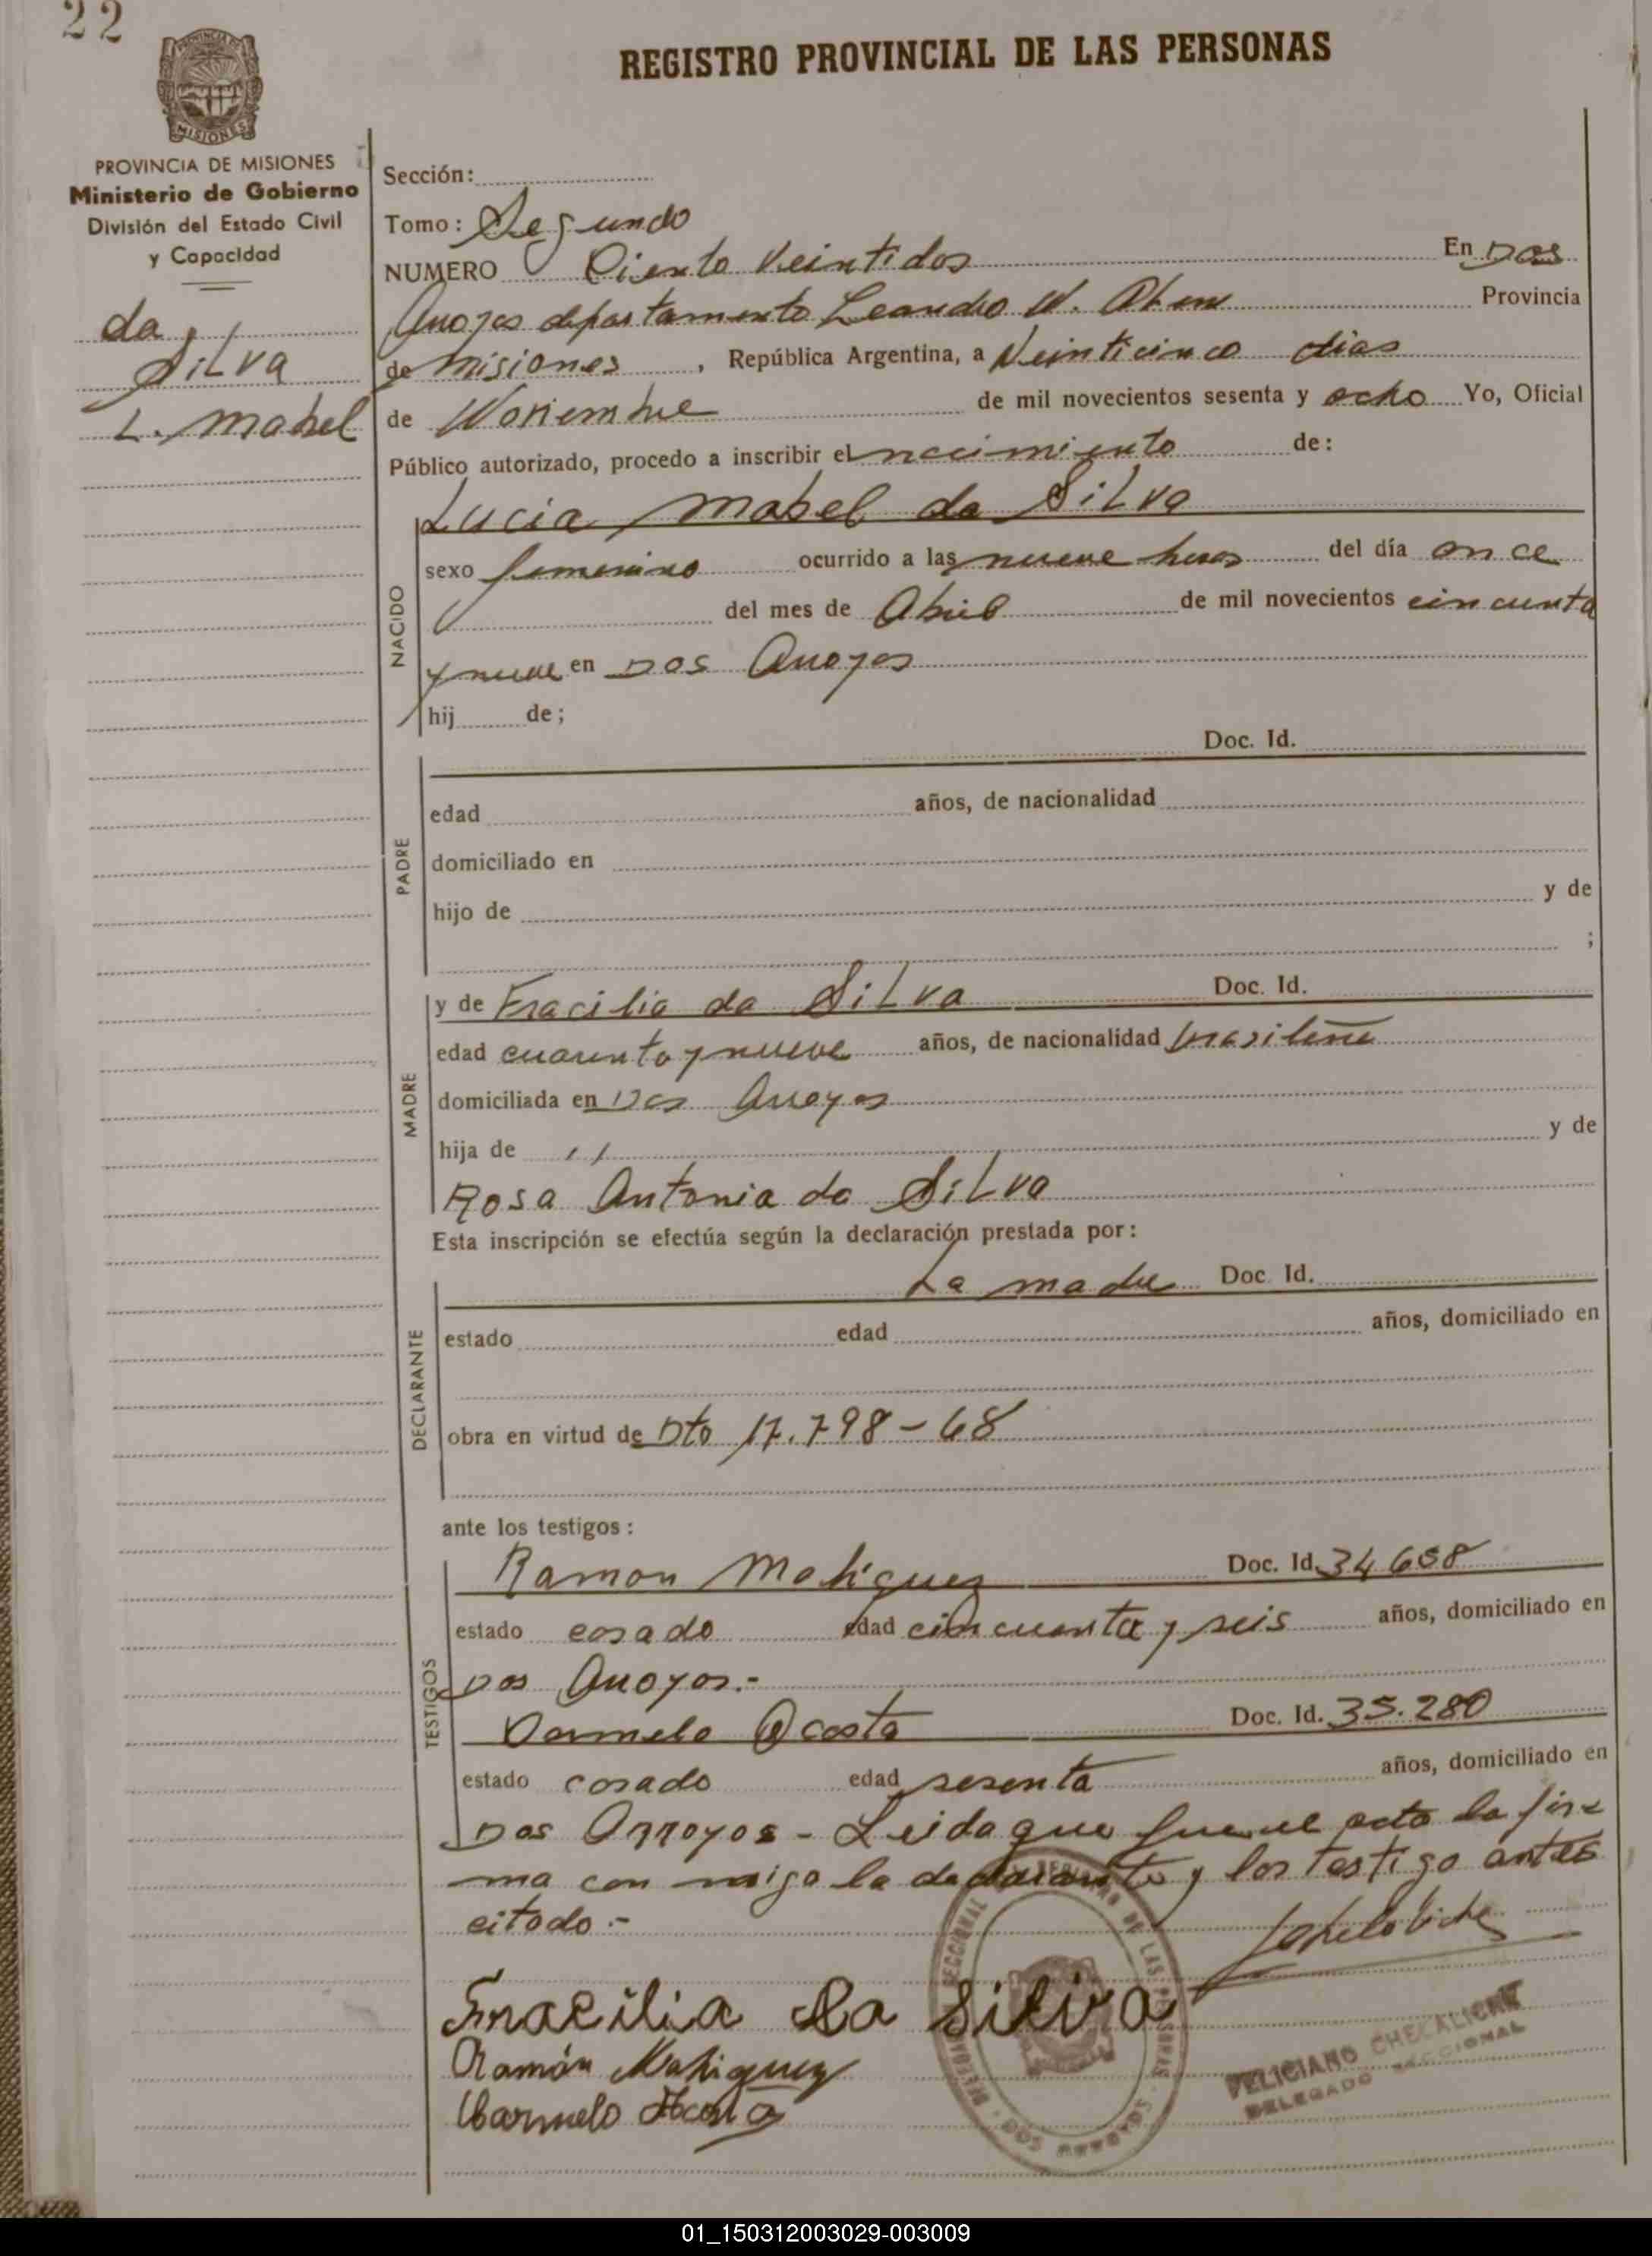 22
MISIONES
REGISTRO PROVINCIAL DE LAS PERSONAS
PROVINCIA DE MISIONES
Ministerio de Gobierno
División del Estado Civil
y Capacidad
da
Silva
L. Mabel
Sección:
Tomo: Segundo
NUMERO Ciento Veintidos En Dos
Arroyos departamento Leandro N. Alem Provincia
de Misiones, República Argentina, a Veinticinco dias
de Noviembre de mil novecientos sesenta y ocho Yo, Oficial
Público autorizado, procedo a inscribir el nacimiento de:
NACIDO
Lucia Mabel da Silva
sexo femenino ocurrido a las nueve horas del día once
del mes de Abril de mil novecientos cincuenta
y nueve en Dos Arroyos
hij de;
PADRE
Doc. Id.
edad años, de nacionalidad
domiciliado en
hijo de y de
;
MADRE
y de Eracilia da Silva Doc. Id.
edad cuarenta y nueve años, de nacionalidad brasileña
domiciliada en Dos Arroyos
hija de / / y de
Rosa Antonia da Silva
Esta inscripción se efectúa según la declaración prestada por:
DECLARANTE
La madre Doc. Id.
estado edad años, domiciliado en
obra en virtud de Dto 17.798-68
ante los testigos:
TESTIGOS
Ramon Mahiquez Doc. Id. 34.658
estado casado edad cincuenta y seis años, domiciliado en
Dos Arroyos.-
Carmelo Acosta Doc. Id. 35.280
estado casado edad sesenta años, domiciliado en
Dos Arroyos - Leida que fue el acta la fir
ma con migo la declarante y los testigo antes
citado.-
Eracilia da Silva
Ramón Mahiquez
Carmelo Acosta
DOS ARROYOS
FELICIANO
DELEGADO SECCIONAL
01_150312003029-003009